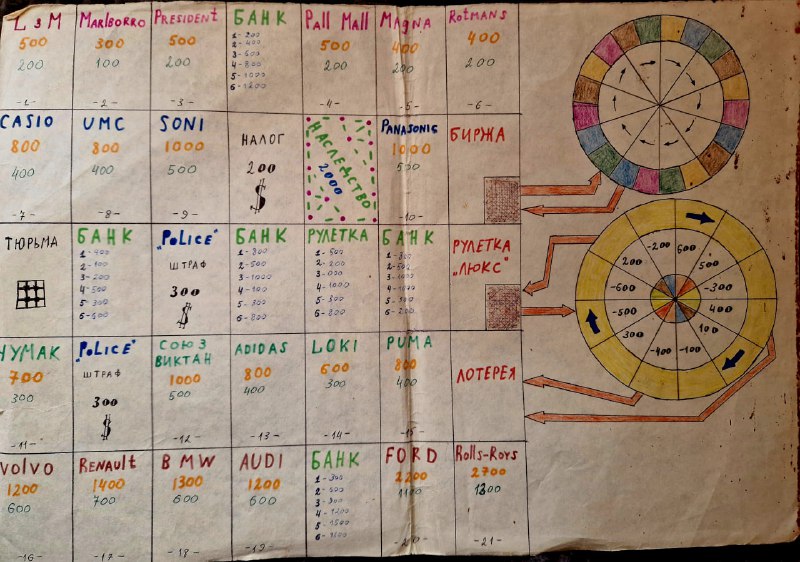 L&M
500
200
-1-
Marlborro
300
100
-2-
President
500
200
-3-
БАНК
1-200
2-400
3-600
4-800
5-1000
6-1200
Pall Mall
500
200
-4-
Magna
400
200
-5-
Rotmans
400
200
-6-
CASIO
800
400
-7-
UMC
800
400
-8-
SONI
1000
500
-9-
НАЛОГ
200
$
НАСЛЕДСТВО
2000
PANASONIC
1000
500
-10-
БИРЖА
ТЮРЬМА
БАНК
2-100
3-200
4-500
5-300
„POLICE"
ШТРАФ
300
$
БАНК
1-800
2-500
3-1000
4-100
5-300
6-800
РУЛЕТКА
1-500
2-200
4-1000
5-300
6-800
БАНК
РУЛЕТКА
„ЛЮКС"
ЧУМАК
700
300
-11-
„POLICE"
ШТРАФ
300
$
СОЮЗ
ВИКТАН
1000
500
-12-
ADIDAS
800
400
-13-
LOKI
600
300
-14-
PUMA
800
400
-15-
ЛОТЕРЕЯ
VOLVO
1200
600
-16-
RENAULT
1400
700
-17-
BMW
1300
600
-18-
AUDI
1200
600
-19-
БАНК
1-300
2-500
3-900
4-1200
5-1500
FORD
2200
1100
-20-
Rolls-Roys
2700
1200
-21-
-200
600
200
500
-600
-300
-500
400
300
100
-400
-100